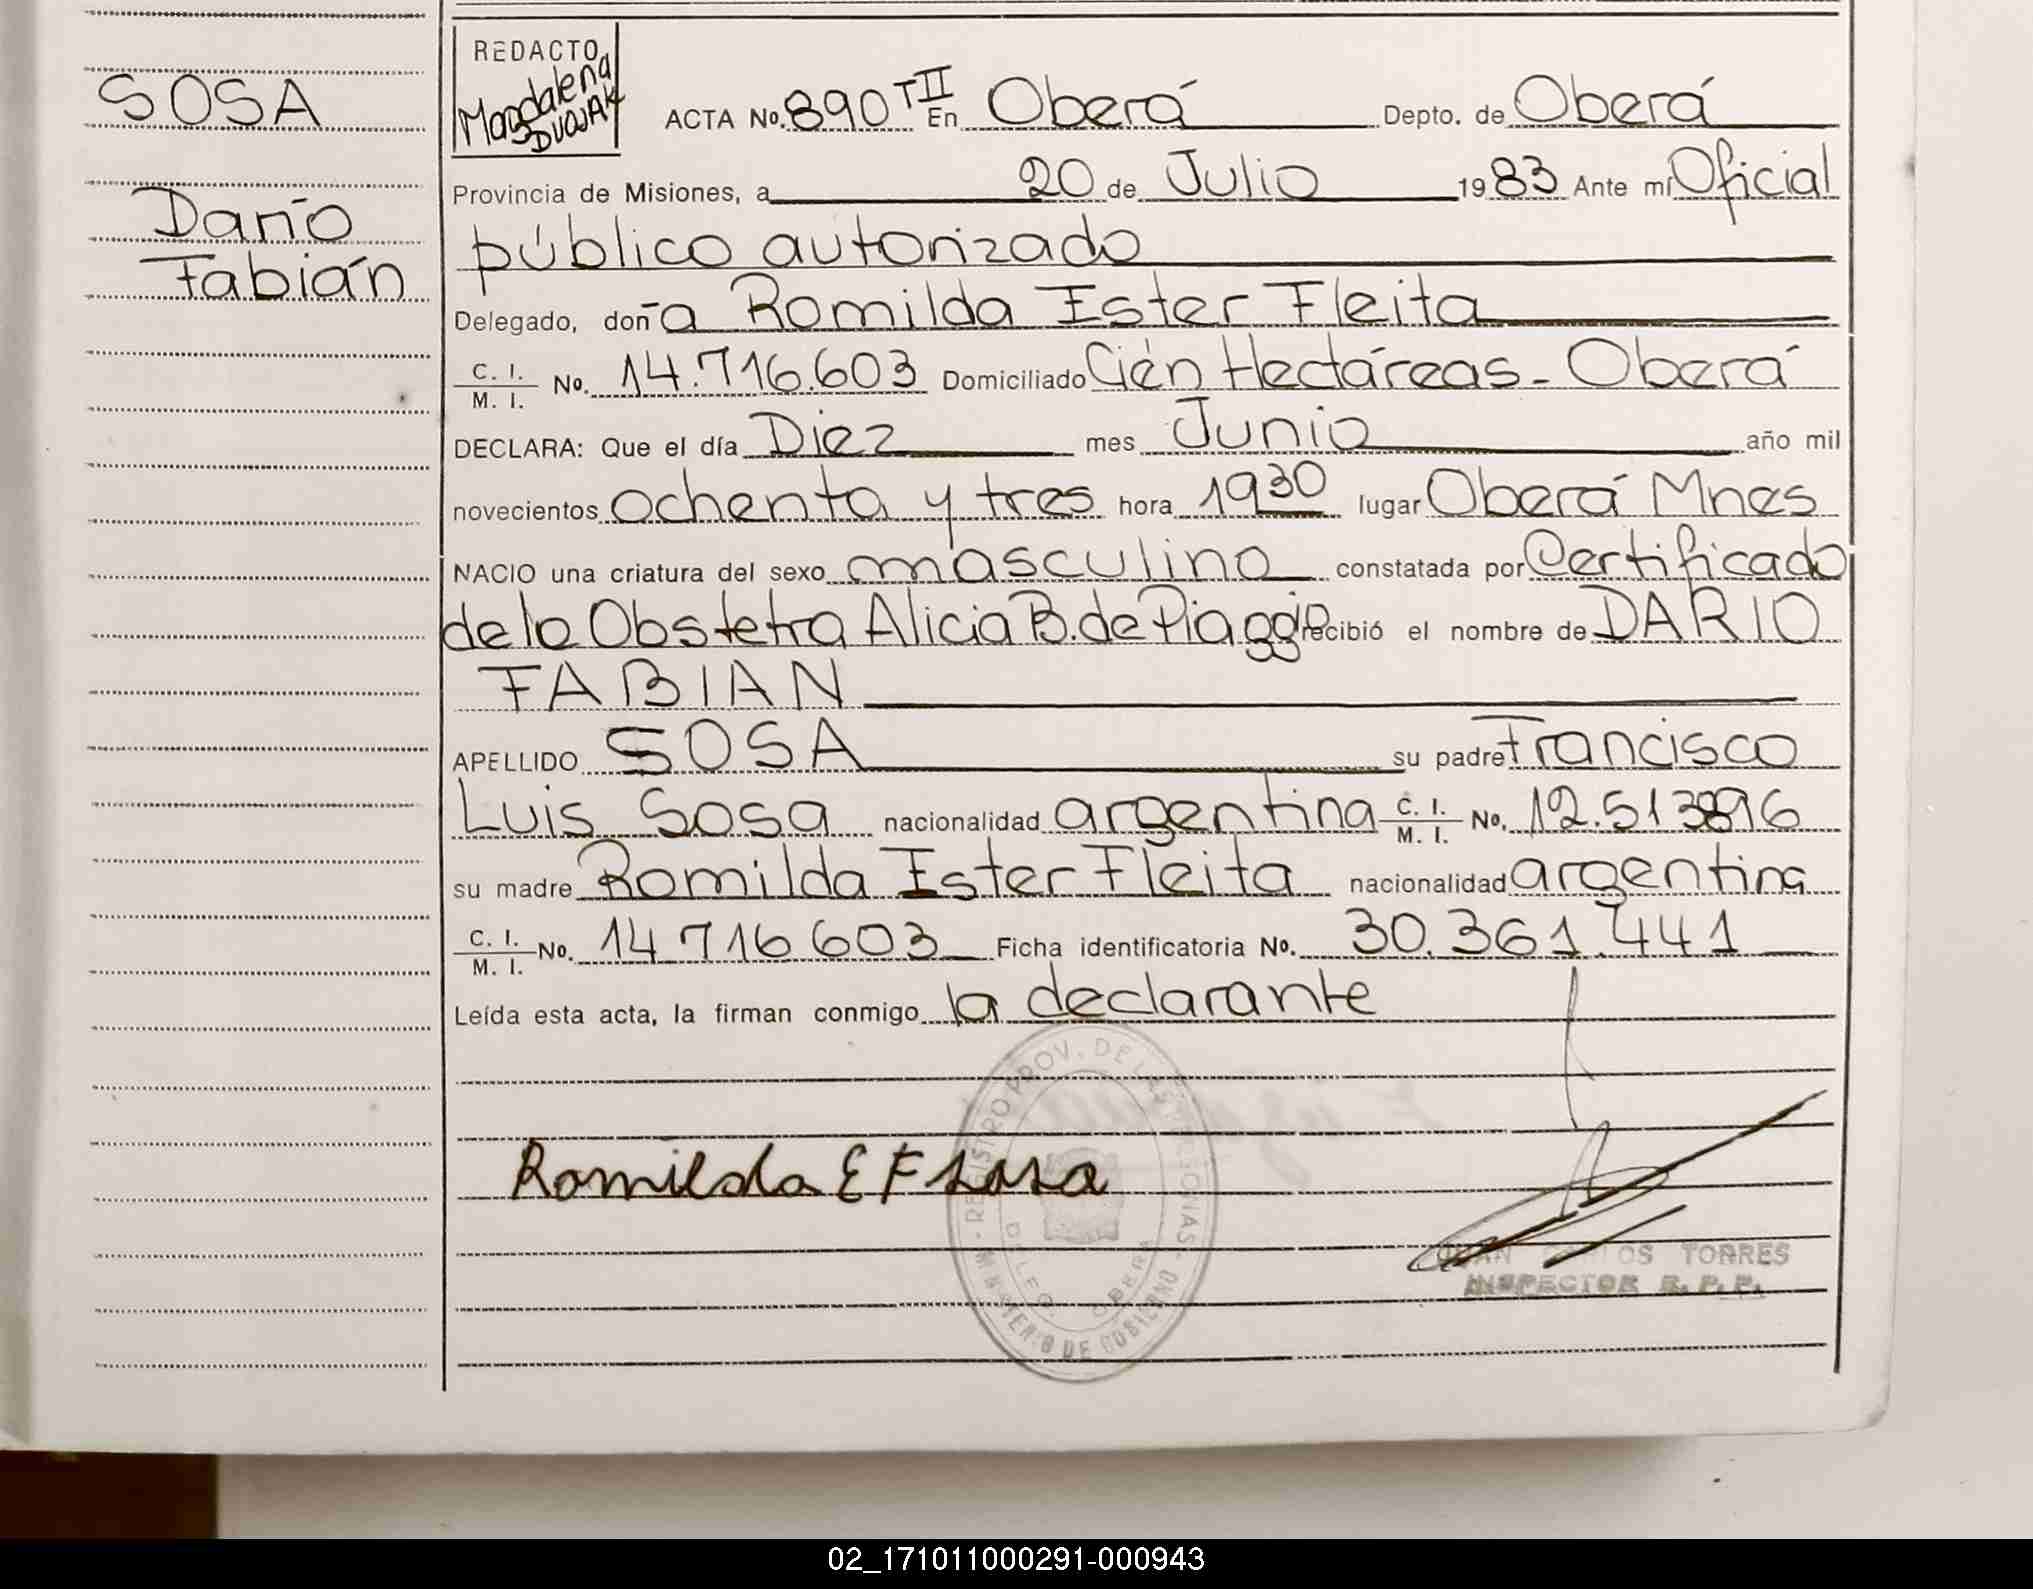 SOSA
Darío
Fabián
REDACTO
Magdalena
DUOJAK
ACTA No. 890 TII En Oberá Depto. de Oberá
Provincia de Misiones, a 20 de Julio 1983 Ante mí Oficial
público autorizado
Delegado, doña Romilda Ester Fleita
C. I. / M. I. No. 14.716.603 Domiciliado Cién Hectáreas - Oberá
DECLARA: Que el día Diez mes Junio año mil
novecientos ochenta y tres hora 1930 lugar Oberá Mnes
NACIO una criatura del sexo masculino constatada por Certificado
de la Obstetra Alicia B. de Piaggio recibió el nombre de DARIO
FABIAN
APELLIDO SOSA su padre Francisco
Luis Sosa nacionalidad argentina C. I. / M. I. No. 12.513896
su madre Romilda Ester Fleita nacionalidad argentina
C. I. / M. I. No. 14 716 603 Ficha identificatoria No. 30.361.441
Leída esta acta, la firman conmigo la declarante
REGISTRO PROV. DE LAS PERSONAS - MINISTERIO DE GOBIERNO
DELEG. OBERA
Romilda E F Sosa
JUAN CARLOS TORRES
INSPECTOR R. P. P.
02_171011000291-000943